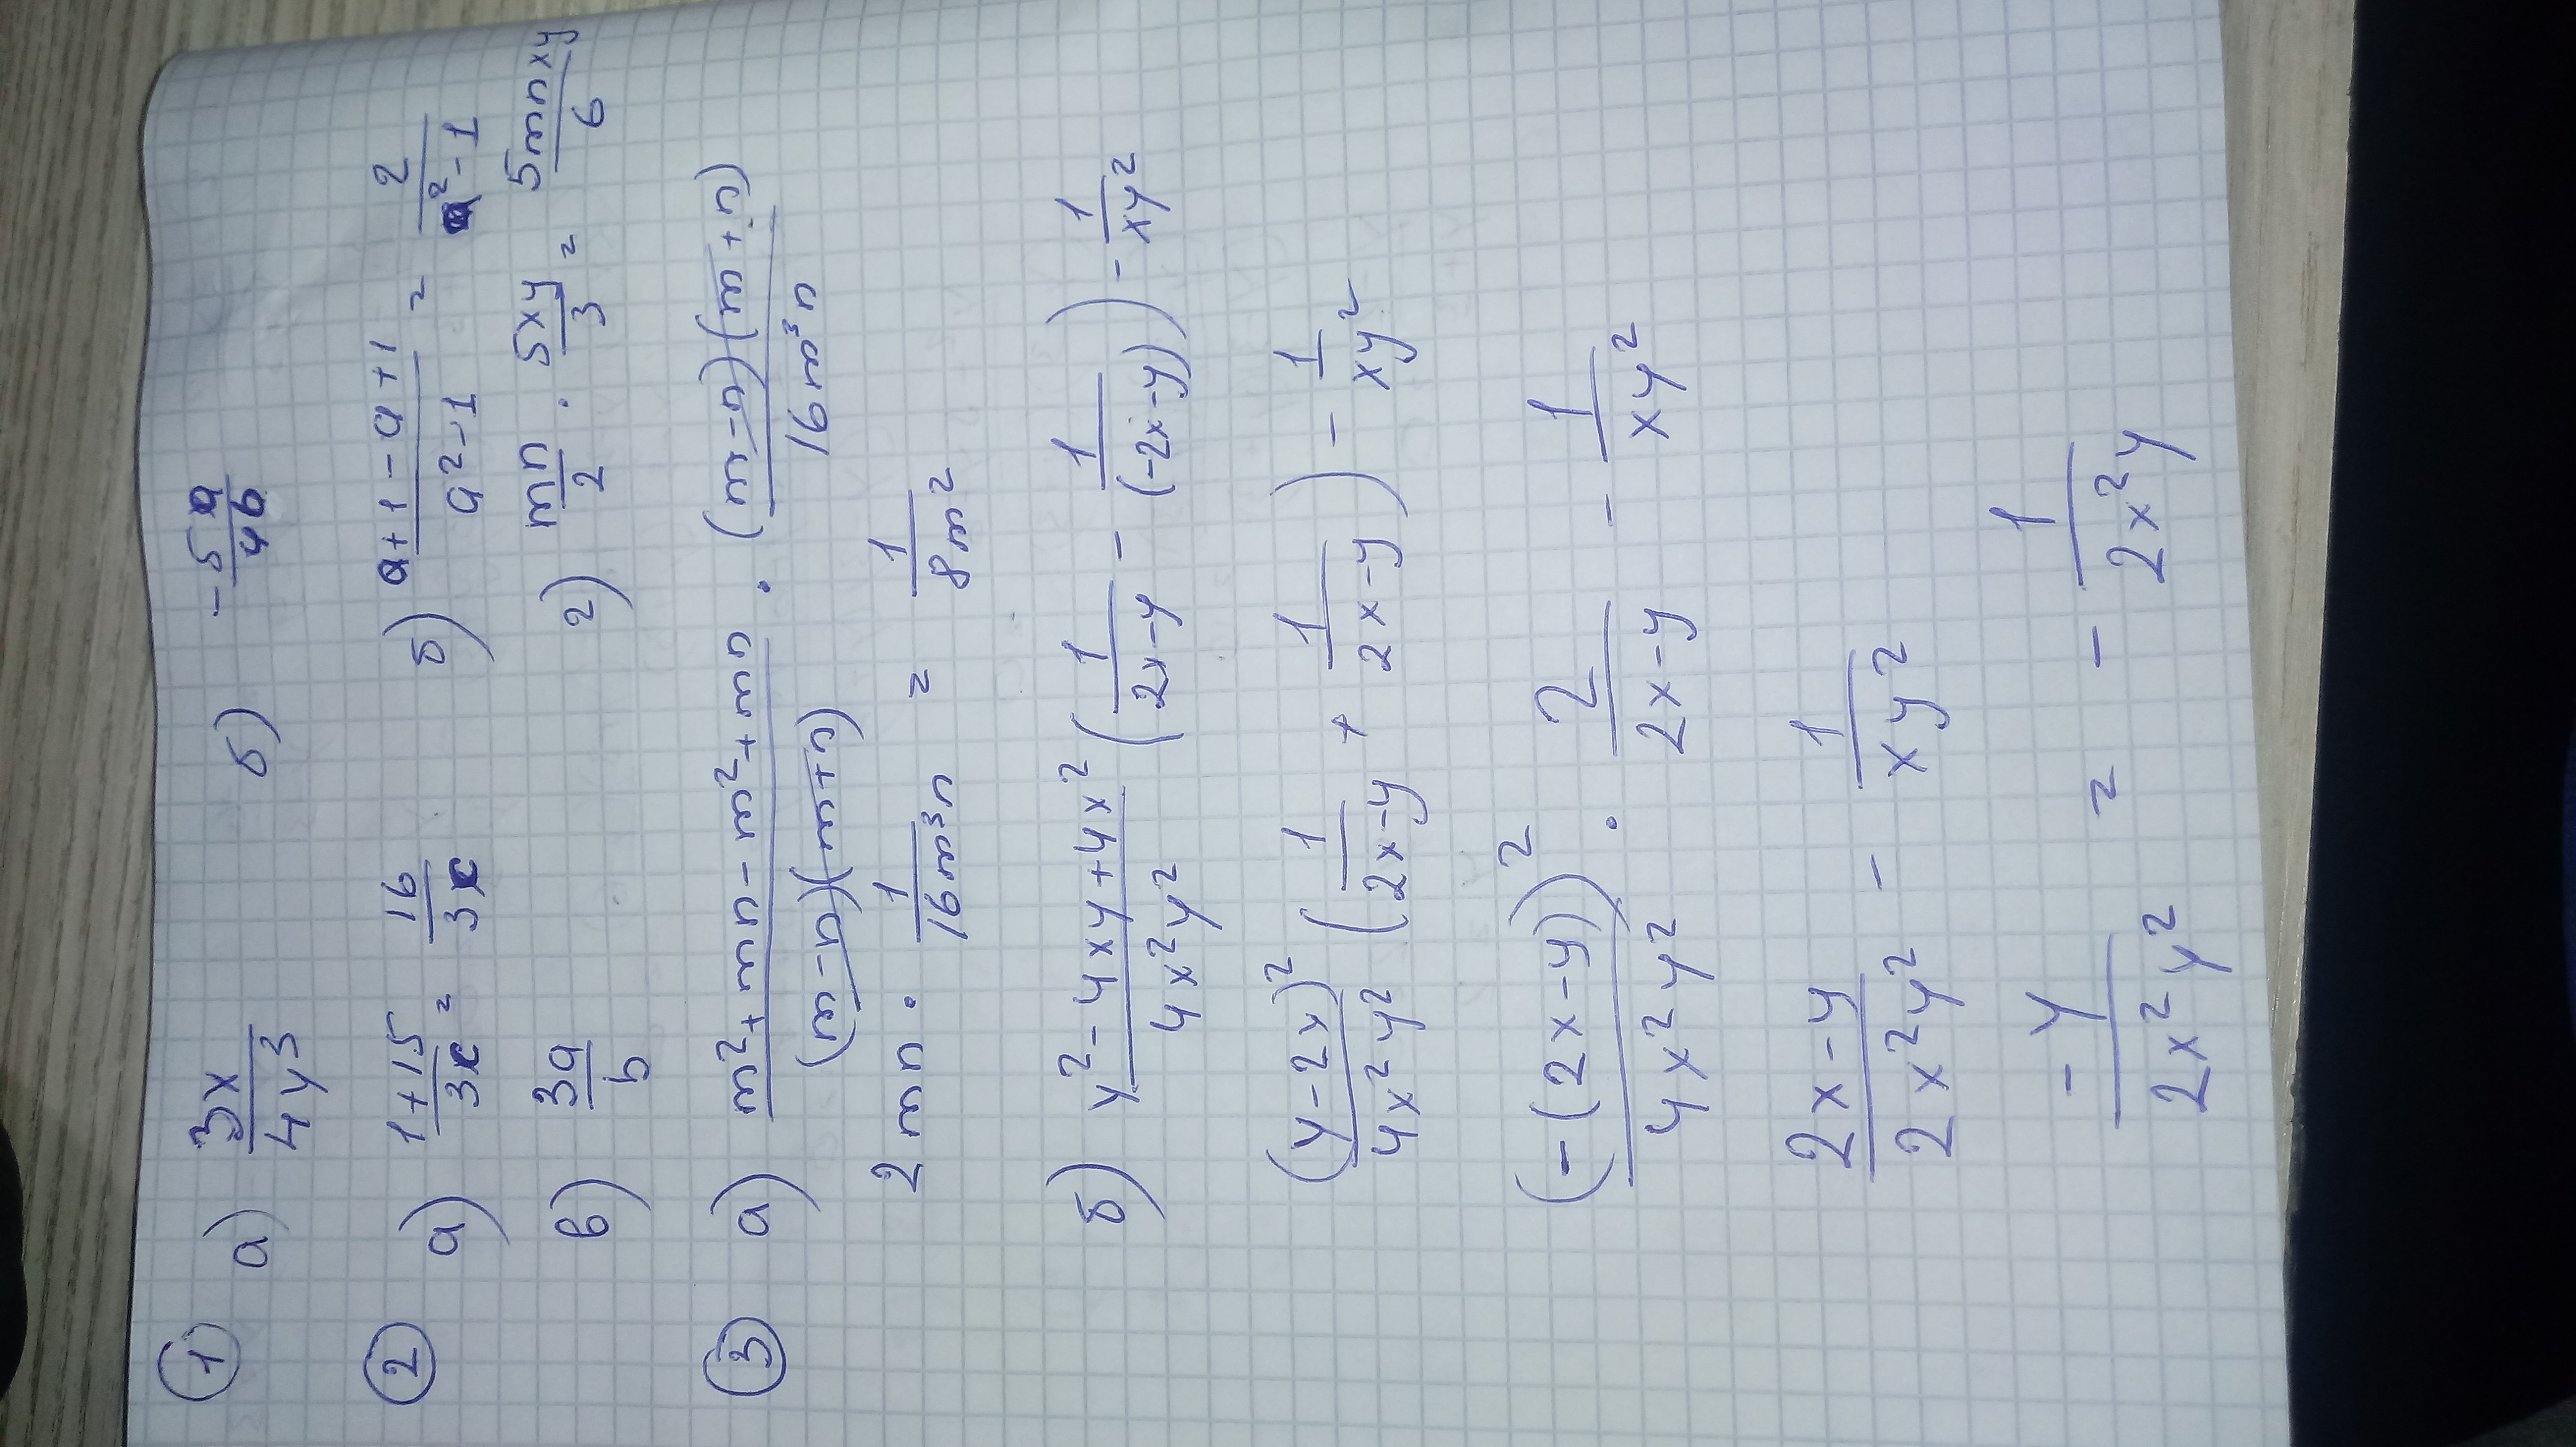 ① а) 3x/4y³ б) -5a/4b
② а) (1+15)/3c = 16/3c б) (a+1-a+1)/(a²-1) = 2/(a²-1)
в) 3a/5 г) mn/2 · 5xy/3 = 5mnxy/6
③ а) (m²+mn-m²+mn)/((m-n)(m+n)) · ((m-n)(m+n))/(16m³n)
2mn · 1/(16m³n) = 1/(8m²)
б) (y²-4xy+4x²)/(4x²y²) (1/(2x-y) - 1/(-2x-y)) - 1/(xy²)
(y-2x)²/(4x²y²) (1/(2x-y) + 1/(2x-y)) - 1/(xy²)
(-(2x-y))²/(4x²y²) · 2/(2x-y) - 1/(xy²)
(2x-y)/(2x²y²) - 1/(xy²)
-y/(2x²y²) = - 1/(2x²y)